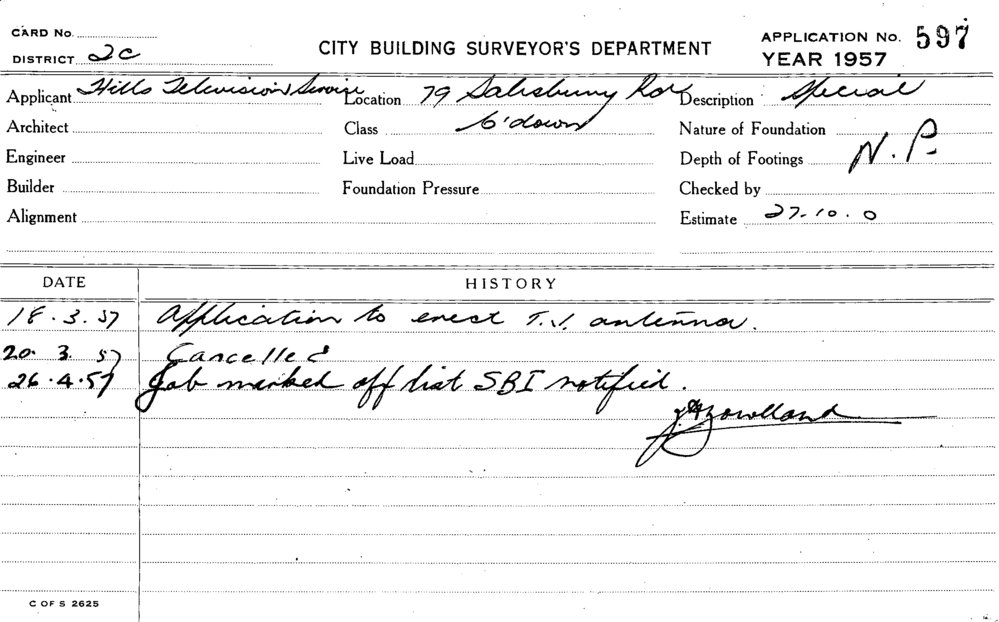 CARD No.
DISTRICT 2C
CITY BUILDING SURVEYOR'S DEPARTMENT
APPLICATION No. 597
YEAR 1957
Applicant Hills Television Service Location 79 Salisbury Road Description Special
Architect Class C'down Nature of Foundation
Engineer Live Load Depth of Footings N.P.
Builder Foundation Pressure Checked by
Alignment Estimate 27-10.0
DATE HISTORY
18.3.57 Application to erect T.V. antenna.
20.3.57 Cancelled
26.4.57 Job marked off list SBI notified.
C OF S 2625